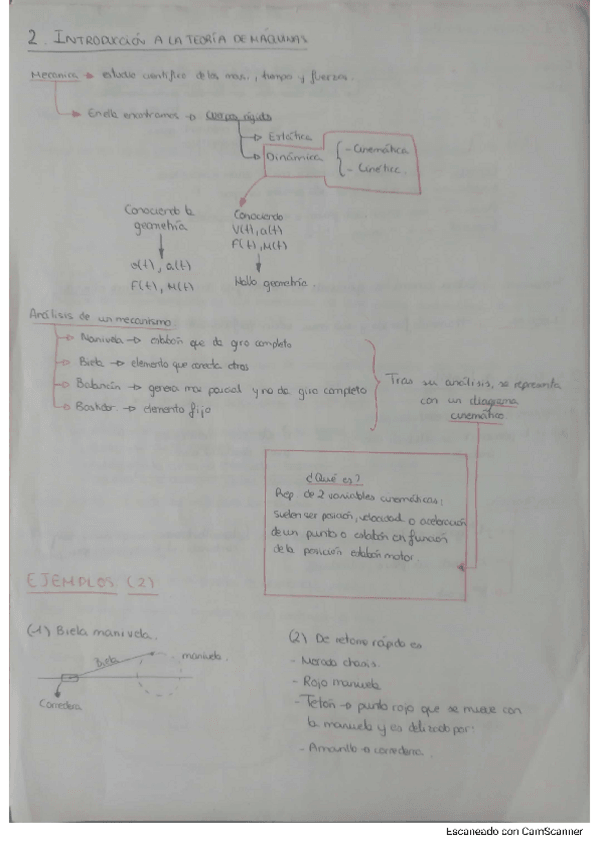 2. INTRODUCCIÓN A LA TEORÍA DE MÁQUINAS
Mecánica → estudio científico de las mov., tiempo y fuerzas.
En ella encontramos → cuerpo rígido
→ Estática
→ Dinámica { - Cinemática
- Cinética.
Conociendo la
geometría
↓
v(t), a(t)
F(t), M(t)
Conociendo
V(t), a(t)
F(t), M(t)
↓
Hallo geometría.
Análisis de un mecanismo
→ Manivela → eslabón que da giro completo
→ Biela → elemento que conecta otros
→ Balancín → genera mov parcial y no da giro completo
→ Bastidor → elemento fijo
Tras su análisis, se representa
con un diagrama
cinemático
¿Qué es?
Rep. de 2 variables cinemáticas;
suelen ser posición, velocidad o aceleración
de un punto o eslabón en función
de la posición eslabón motor
EJEMPLOS (2)
(1) Biela manivela.
Biela
manivela.
Corredera
(2) De retorno rápido es
- Morado chasis.
- Rojo manivela
- Tetón → punto rojo que se mueve con
la manivela y es por:
- Amarillo → corredera.
Escaneado con CamScanner